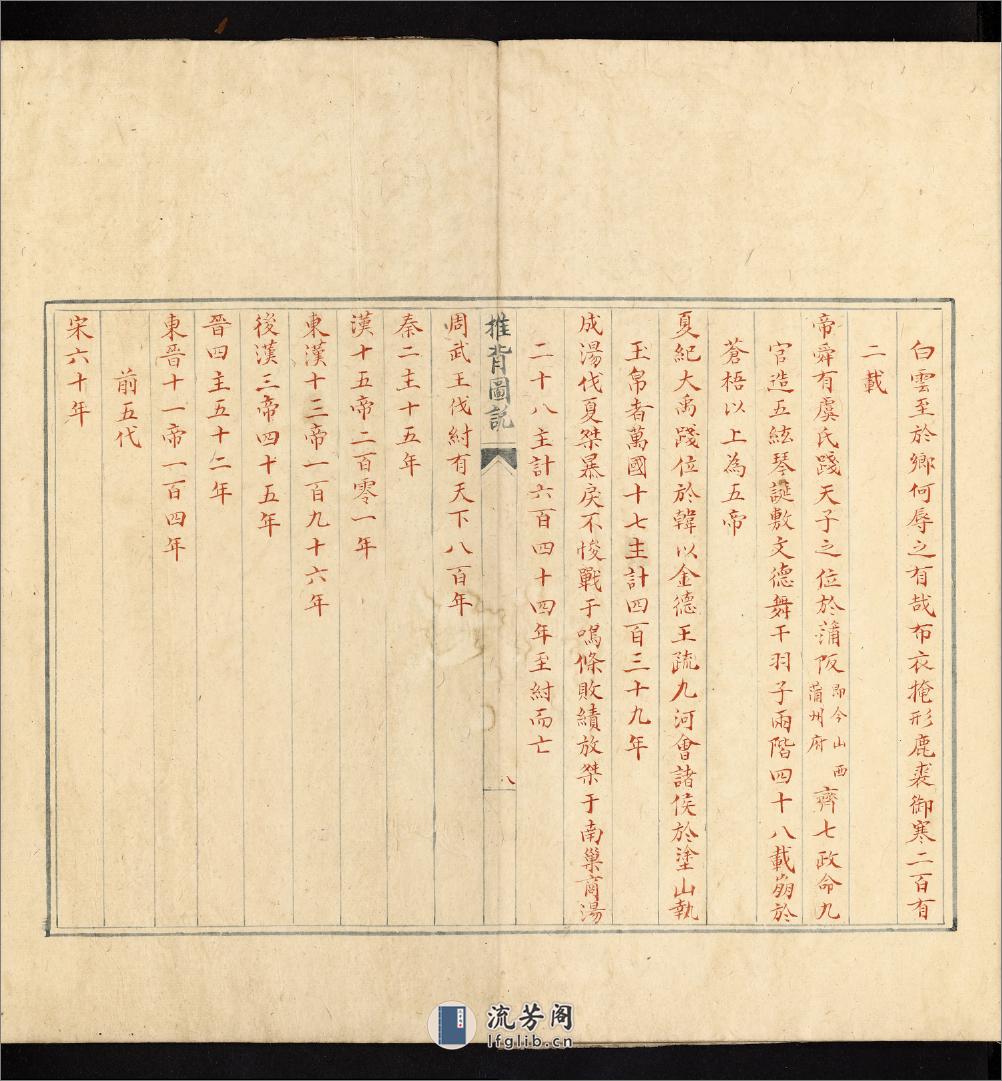 白雲至於鄉何辱之有哉布衣掩形鹿裘御寒二百有
二載
帝舜有虞氏踐天子之位於蒲阪即今山西蒲州府齊七政命九
官造五絃琴誕敷文德舞干羽于兩階四十八載崩於
蒼梧以上為五帝
夏紀大禹踐位於韓以金德王疏九河會諸侯於塗山執
玉帛者萬國十七主計四百三十九年
成湯伐夏桀暴戾不悛戰于鳴條敗績放桀于南巢商湯
二十八主計六百四十四年至紂而亡
推背圖說
八
周武王伐紂有天下八百年
秦二主十五年
漢十五帝二百零一年
東漢十三帝一百九十六年
後漢三帝四十五年
晉四主五十二年
東晉十一帝一百四年
前五代
宋六十年
流芳阁
lfglib.cn